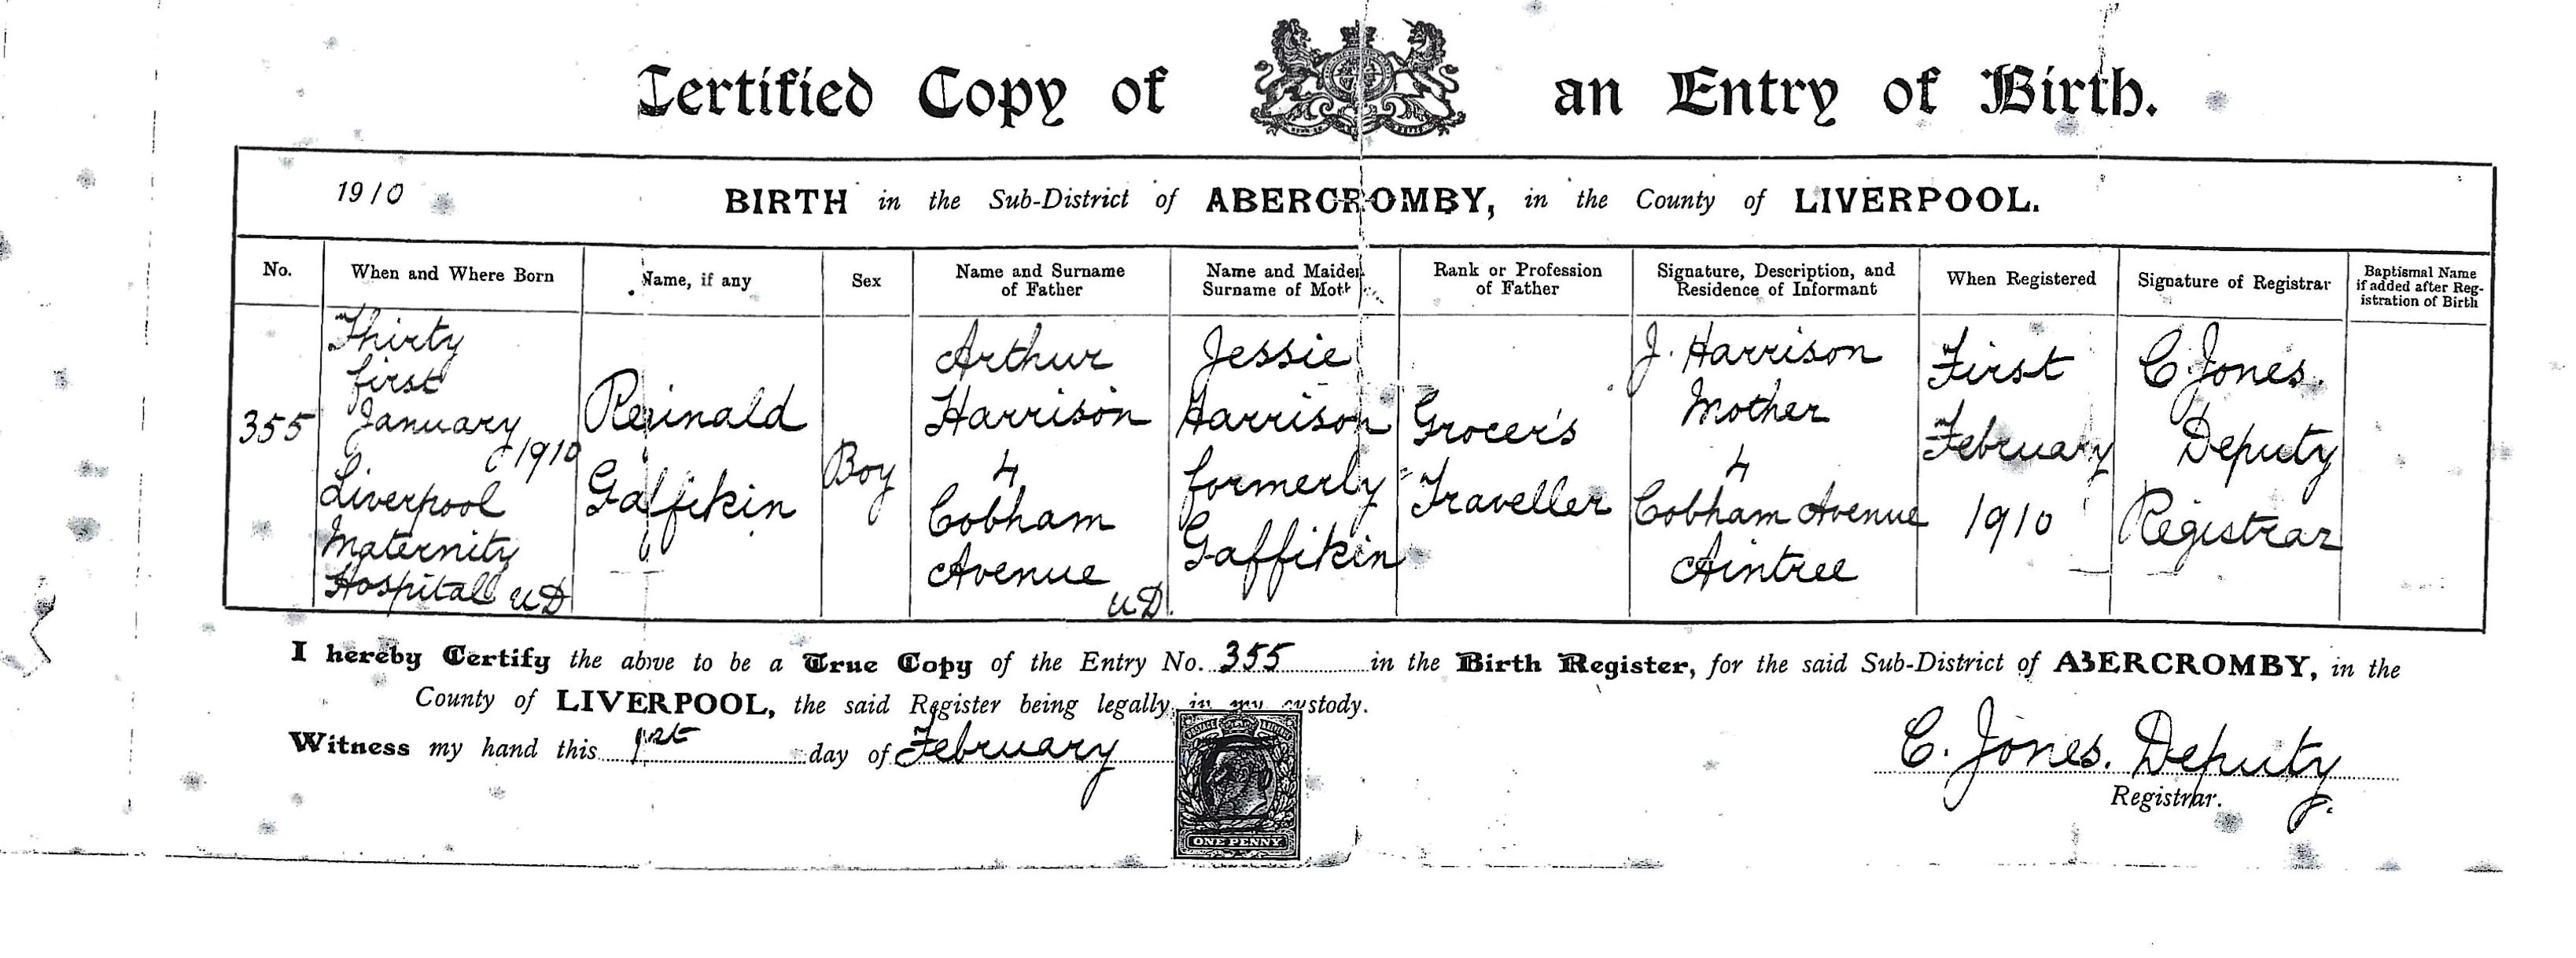 Certified Copy of an Entry of Birth.
1910 BIRTH in the Sub-District of ABERCROMBY, in the County of LIVERPOOL.
No.
When and Where Born
Name, if any
Sex
Name and Surname
of Father
Name and Maiden
Surname of Moth
Rank or Profession
of Father
Signature, Description, and
Residence of Informant
When Registered
Signature of Registrar
Baptismal Name
if added after Reg-
istration of Birth
355
Thirty
first
January
1910
Liverpool
Maternity
Hospital UD
Reginald
Gaffikin
Boy
Arthur
Harrison
4
Cobham
Avenue
UD.
Jessie
Harrison
formerly
Gaffikin
Grocer's
Traveller
J. Harrison
Mother
4
Cobham Avenue
Aintree
First
February
1910
C. Jones.
Deputy
Registrar
I hereby Certify the above to be a True Copy of the Entry No. 355 in the Birth Register, for the said Sub-District of ABERCROMBY, in the
County of LIVERPOOL, the said Register being legally in my custody.
Witness my hand this 1st day of February
C. Jones. Deputy
Registrar.
POSTAGE REVENUE
ONE PENNY